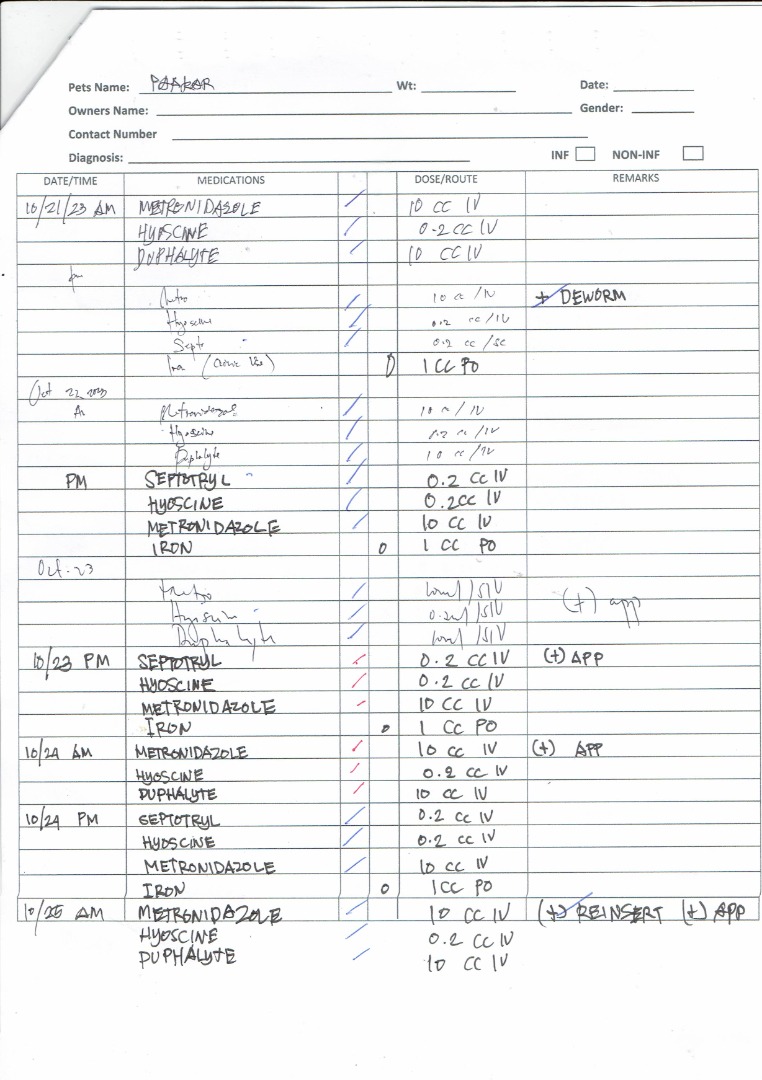 Pets Name: Wt: Date:
Owners Name: Gender:
Contact Number
Diagnosis: INF NON-INF
DATE/TIME MEDICATIONS DOSE/ROUTE REMARKS
10/21/23 AM METRONIDAZOLE 10 CC IV
HYOSCINE 0.2 CC IV
DUPHALYTE 10 CC IV
pm
Metro 10 cc /IV + DEWORM
Hyoscine 0.2 cc /IV
Septo 0.2 cc /SC
(Clinic Use) 1 CC PO
Oct 22, 2023
Am Metronidazole 10 cc / IV
Hyoscine 0.2 cc /IV
Duphalyte 10 cc /IV
PM SEPTOTRYL 0.2 CC IV
HYOSCINE 0.2CC IV
METRONIDAZOLE 10 CC IV
IRON 0 1 CC PO
Oct-23
Metro 10ml /SIV
Hyoscine 0.2ml /SIV (+) app
Duphalyte 10ml /SIV
10/23 PM SEPTOTRYL 0.2 CC IV (+) APP
HYOSCINE 0.2 CC IV
METRONIDAZOLE 10 CC IV
IRON 0 1 CC PO
10/24 AM METRONIDAZOLE 10 CC IV (+) APP
HYOSCINE 0.2 CC IV
DUPHALYTE 10 CC IV
10/24 PM SEPTOTRYL 0.2 CC IV
HYOSCINE 0.2 CC IV
METRONIDAZOLE 10 CC IV
IRON 0 1CC PO
10/25 AM METRONIDAZOLE 10 CC IV (+) REINSERT (+) APP
HYOSCINE 0.2 CC IV
DUPHALYTE 10 CC IV